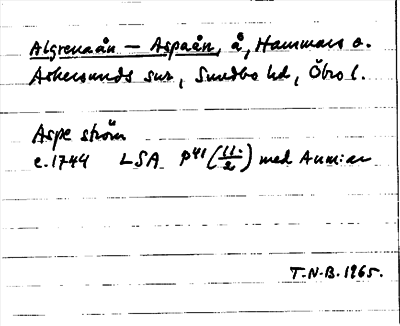 Algrenaån — Aspaån, å, Hammars o.
Askersunds snr, Sundbo hd, Öbro l.
Aspe ström
c. 1744 LSA P41 (11:/2) med
T.N.B. 1965.